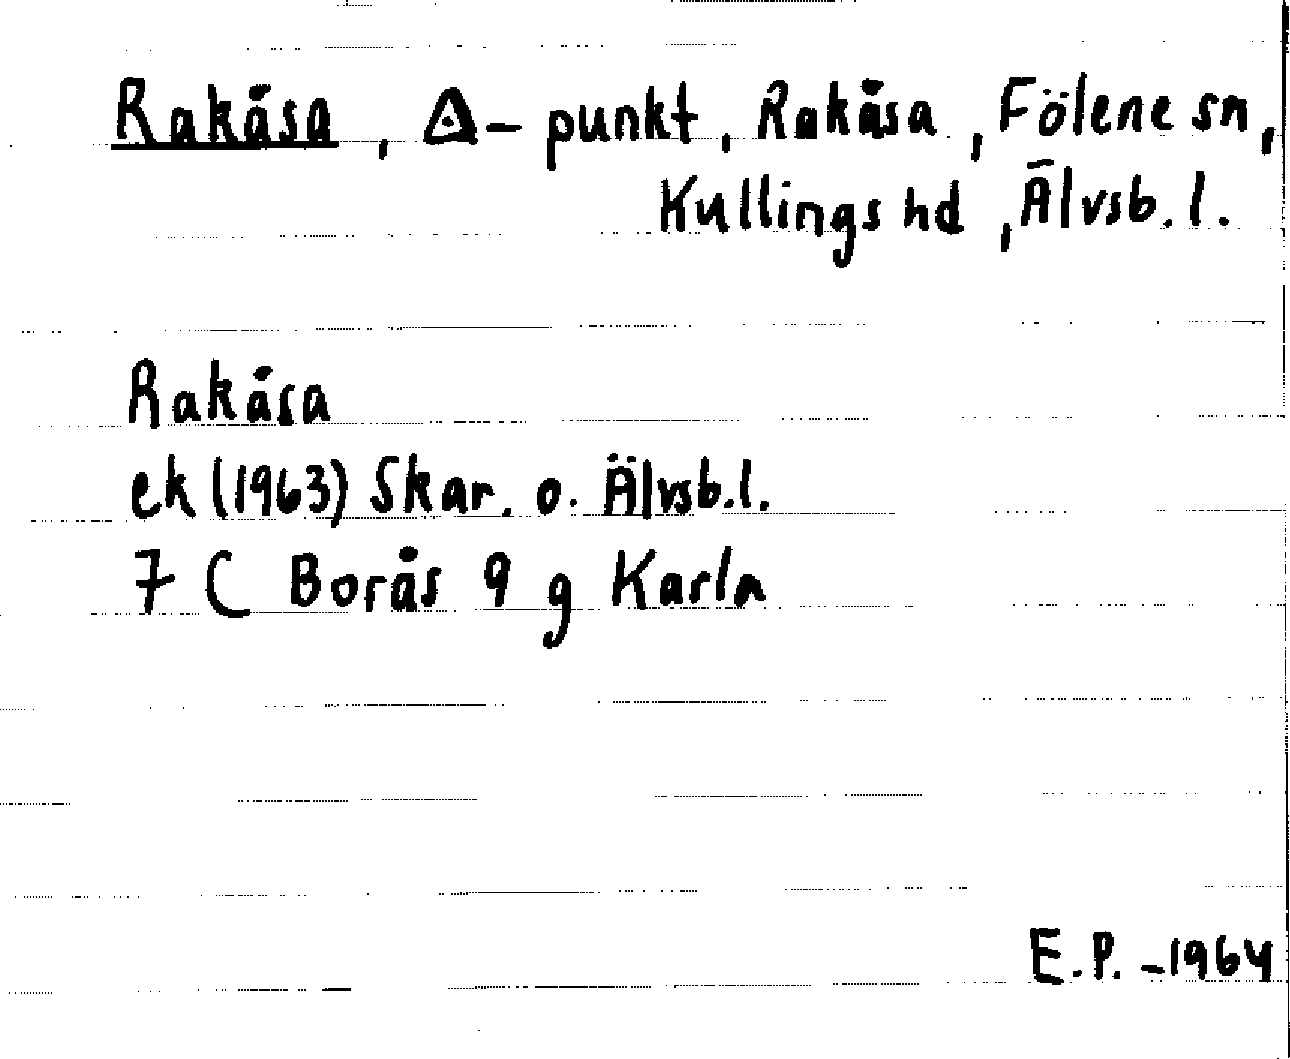 Rakåsa, △-punkt, Rakåsa, Fölene sn,
Kullings hd, Älvsb. l.
Rakåsa
ek (1963) Skar. o. Älvsb. l.
7 C Borås 9 g Karla
E.P. -1964